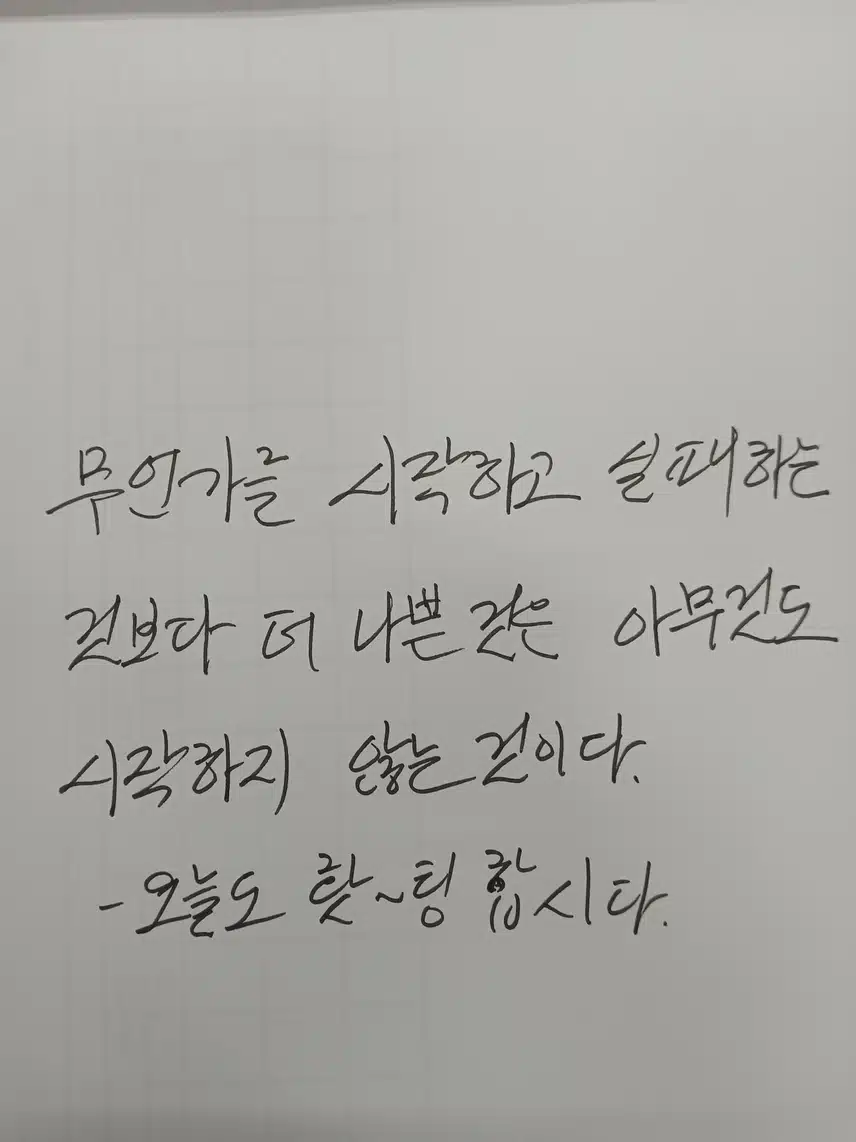 무언가를 시작하고 실패하는
것보다 더 나쁜 것은 아무것도
시작하지 않는 것이다.
- 오늘도 홧~팅 합시다.